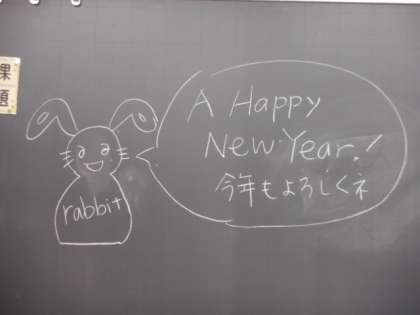 課題
rabbit
A Happy
New Year!
今年もよろしくネ